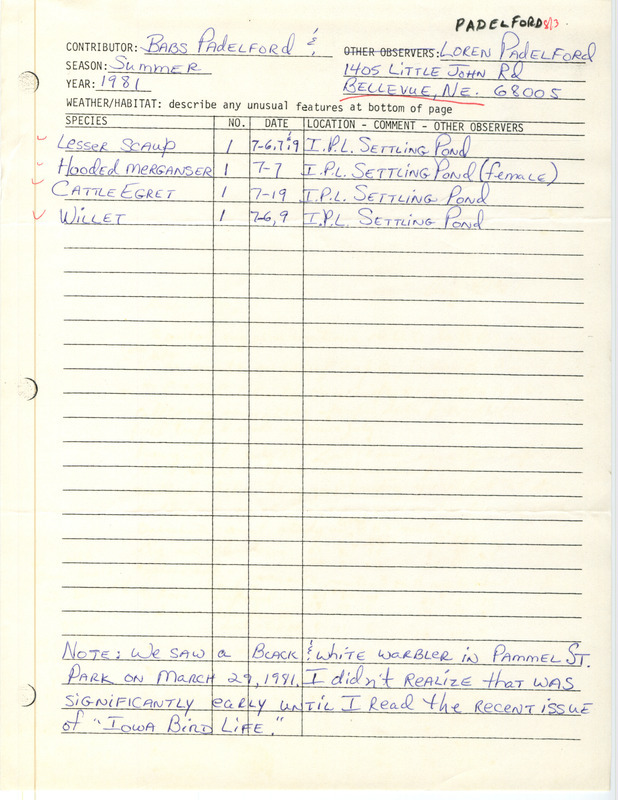 PADELFORD 8/3
CONTRIBUTOR: BABS PADELFORD &
OTHER OBSERVERS: LOREN PADELFORD
SEASON: SUMMER
1405 LITTLE JOHN RD
YEAR: 1981
BELLEVUE, NE. 68005
WEATHER/HABITAT: describe any unusual features at bottom of page
SPECIES NO. DATE LOCATION - COMMENT - OTHER OBSERVERS
LESSER SCAUP 1 7-6,7&9 I.P.L. SETTLING POND
HOODED MERGANSER 1 7-7 I.P.L. SETTLING POND (female)
CATTLE EGRET 1 7-19 I.P.L. SETTLING POND
WILLET 1 7-6,9 I.P.L. SETTLING POND
NOTE: WE SAW a BLACK & WHITE WARBLER IN PAMMEL ST.
PARK ON MARCH 29, 1981. I didn't REALIZE that WAS
SIGNIFICANTLY EARLY UNTIL I READ the RECENT ISSUE
of "IOWA BIRD LIFE."